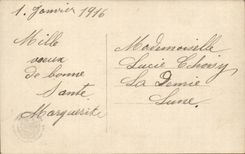 1. Janvier 1916
Mille
voeux
de bonne
Santé
Marguerite
Mademoiselle
Lucie Choisy
La Demie
Lune.